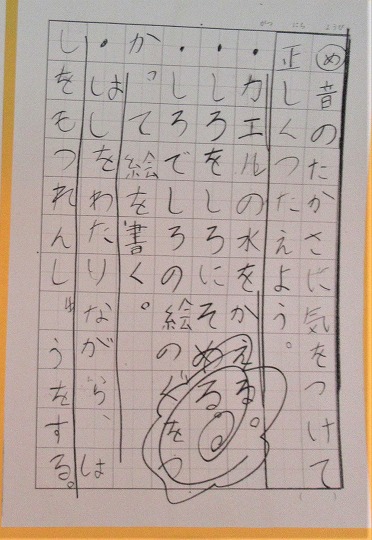 がつ にち ようび
め 音のたかさに気をつけて
正しくつたえよう。
・カエルの水をかえる。
・しろをしろにそめる。
・しろでしろの絵のぐをつ
かって絵を書く。
・はしをわたりながら、は
しをもつれんしゅうをする。